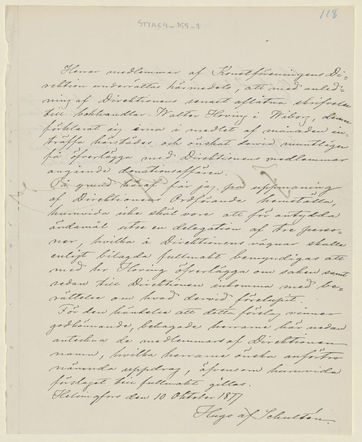 118
Herrar medlemmar af Konstföreningens Di-
rektion underrättas härmedels, att med anled-
ning af Direktionens senast aflåtna skrifvelse
till bokhandlar Walter Hoving i Wiborg, denne
förklarat sig ärna i medlet af månaden in-
träffa härstädes och önskat dervid muntligen
få öfverlägga med Direktionens medlemmar
angående donationsaffären.
På grund häraf får jag, på uppmaning
af Direktionens Ordförande hemställa,
huruvida icke skäl vore att för antydda
ändamål utse en delegation af tre perso-
ner, hvilka å Direktionens vägnar skulle
enligt bilagda fullmakt bemyndigas att
med hr Hoving öfverlägga om saken samt
sedan till Direktionen inkomma med be-
rättelse om hvad dervid förelupit.
För den händelse att detta förslag vinner
godkännande, behagade herrarne här nedan
anteckna de medlemmar af Direktionen
namn, hvilka herrarne önska anförtro
nämnda uppdrag, äfvensom huruvida
förslaget till fullmakt gillas.
Helsingfors den 10 Oktober 1877
Hugo af Schultén